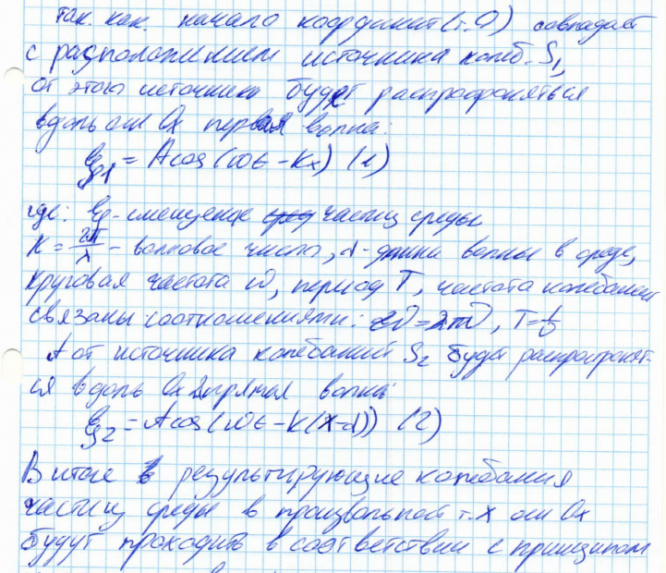 так. как. начало координат (т. О) совпадает
с расположением источника колеб. S₁,
от этого источника будет распространяться
вдоль оси Ox первая волна:
ξ₁ = A cos(ωt - kx) (1)
где: ξ - смещение частиц среды
K = 2π/λ - волновое число, λ - длина волны в среде,
круговая частота ω, период T, частота колебаний
связаны соотношениями: ω = 2πν, T = 1/ν
A от источника колебаний S₂ будет распространят-
ся вдоль Ox прямая волна:
ξ₂ = A cos(ωt - k(x-d)) (2)
В итоге результирующие колебания
частиц среды в произвольной т. x оси Ox
будут проходить в соответствии с принципом